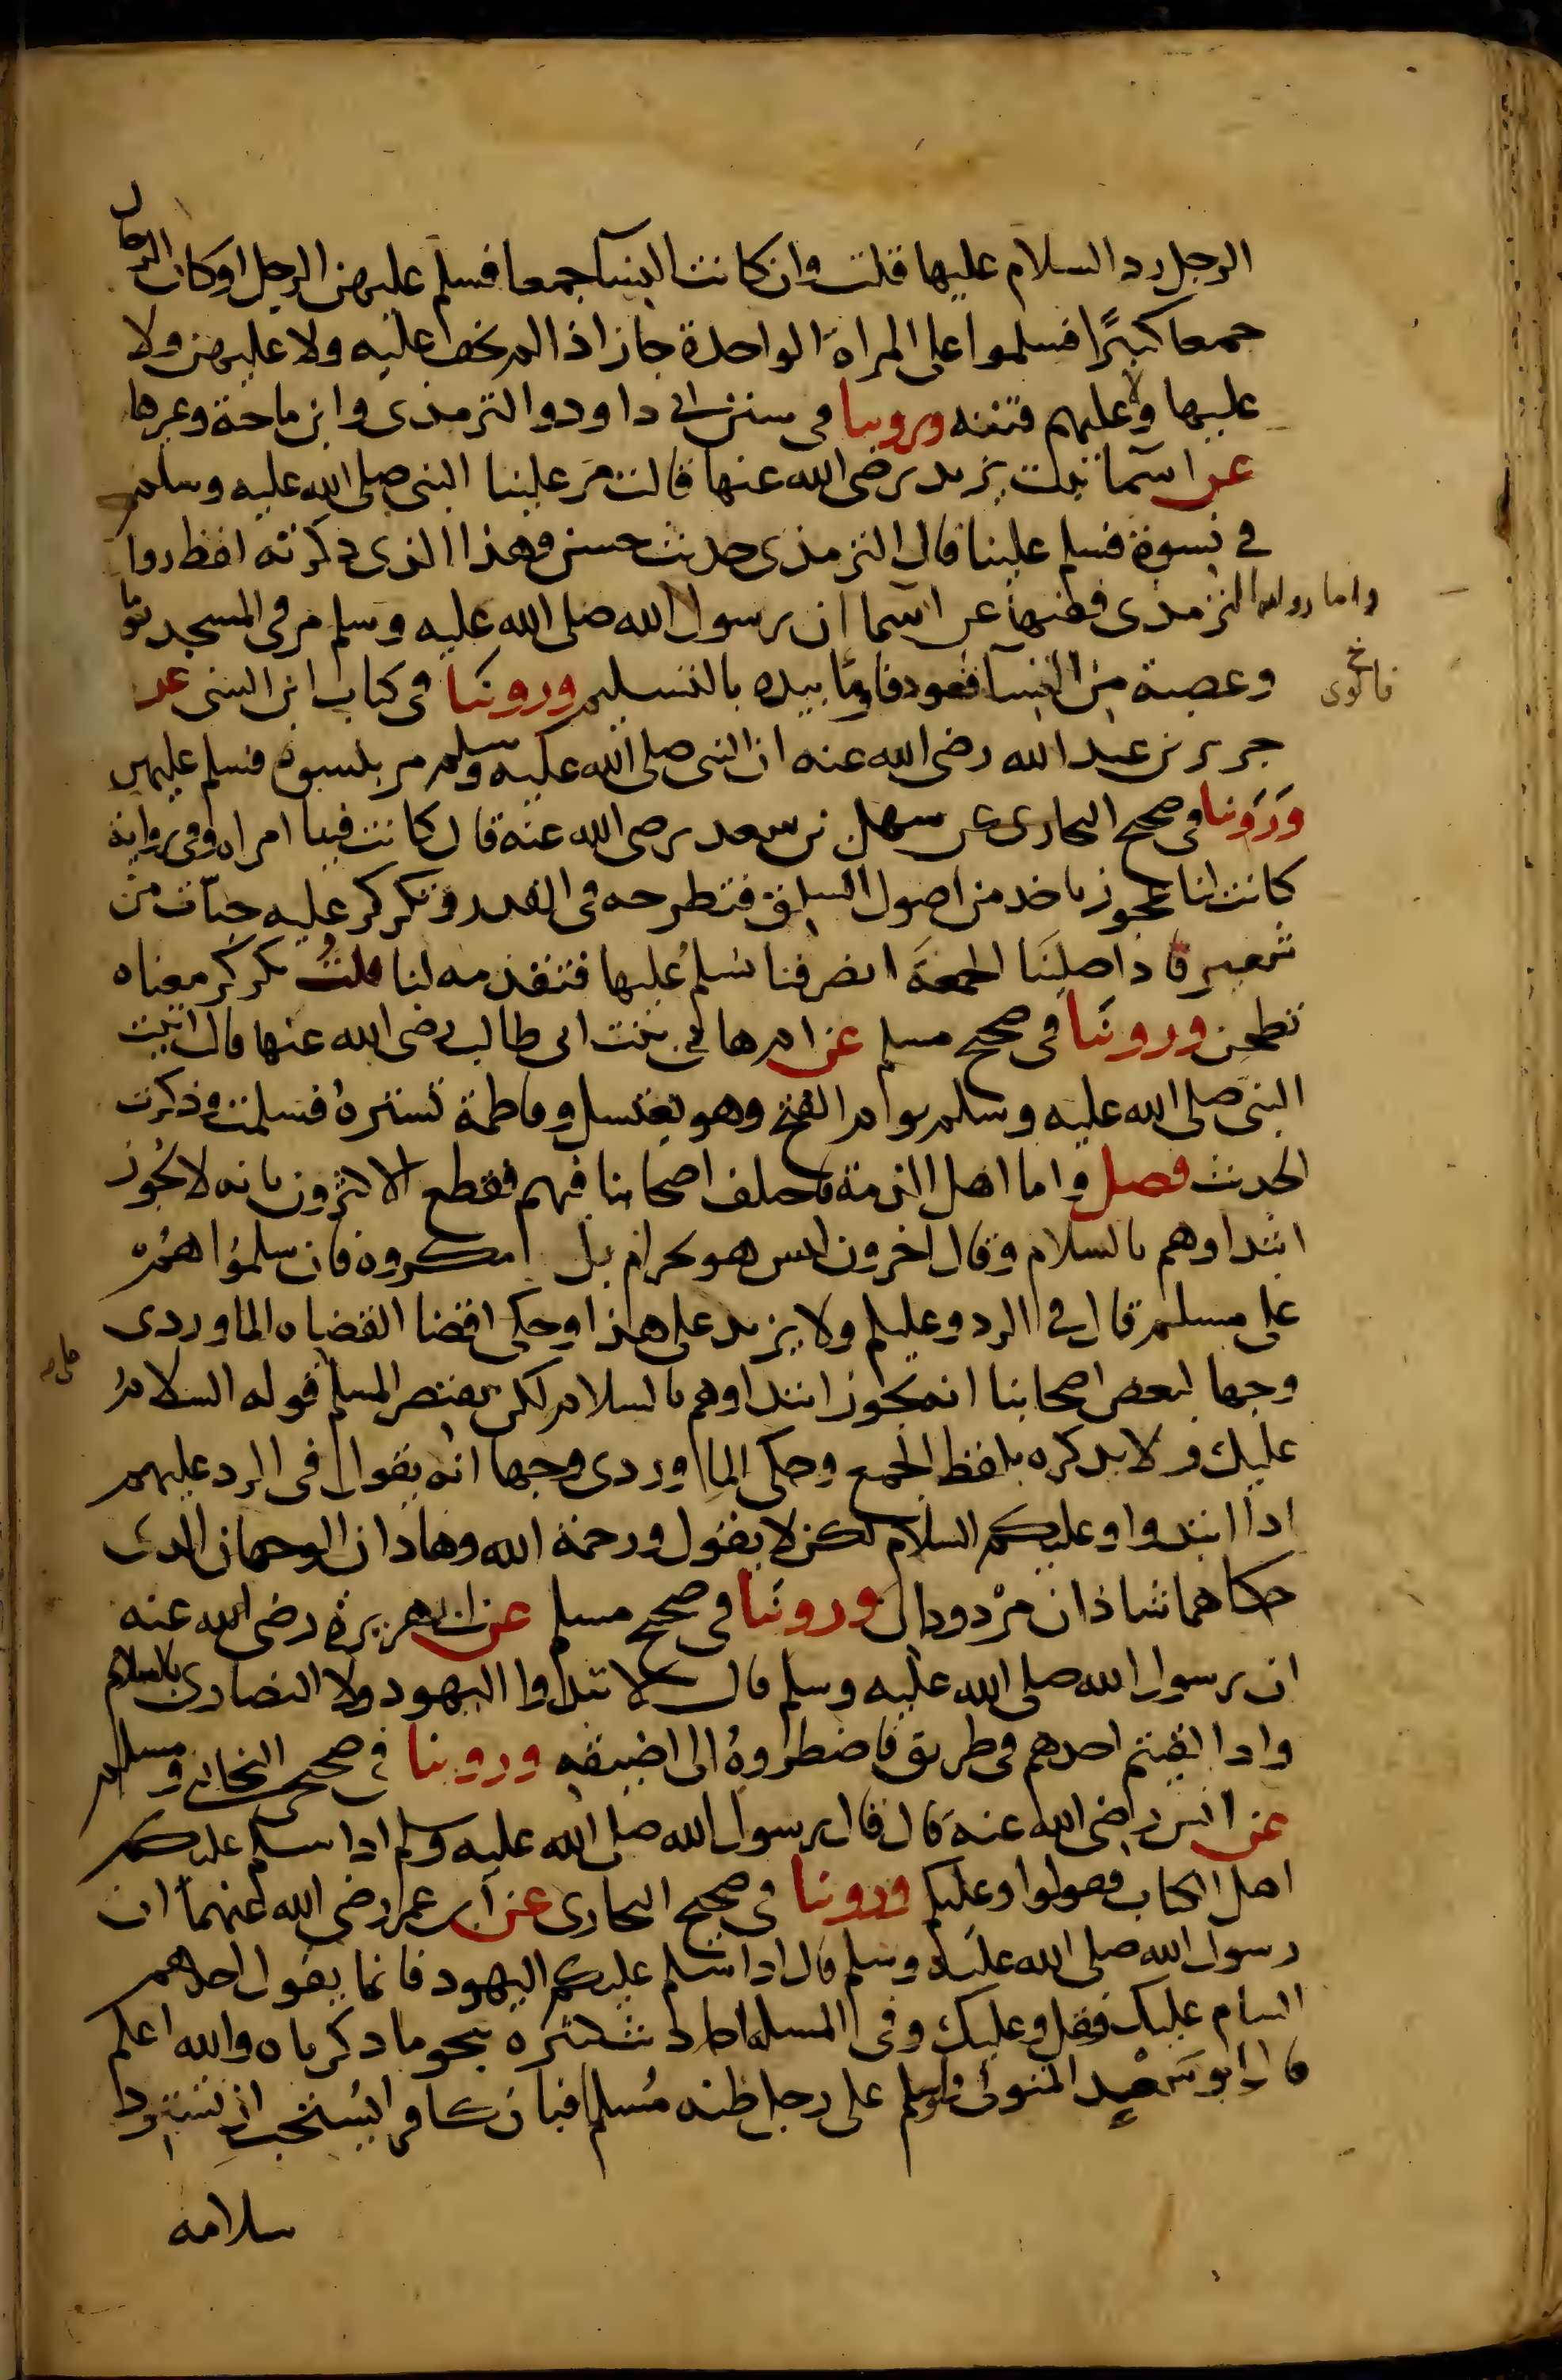 الرجل رد السلام عليها قلت وان كانت النسآ جمعا فسلم عليهن الرجل او كان الرجال
جمعا كثيرًا فسلموا على المراة الواحدة جاز اذا لم يخف عليه ولا عليهن ولا
عليها ولا عليهم فتنه وروينا فى سنن ابي داود والترمذى وابن ماجة وغيرها
عن اسمآ بنت يزيد رضى الله عنها قالت مَر علينا النبى صلى الله عليه وسلم
في نسوة فسلم علينا قال الترمذى حديث حسن وهذا الذى ذكرته لفظ روا
واما رواية الترمذى فظنها عن اسمآ ان رسول الله صلى الله عليه وسلم مر فى المسجد يوما
وعصبة من النسآ قعود فاومَا بيده بالتسليم وروينَا فى كتاب ابن السنى عن
فالوى خ
جرير بن عبد الله رضى الله عنه ان النبى صلى الله عليه وسلم مر بنسوة فسلم عليهن
وَرَوَينا فى صحيح البخارى عن سهل بن سعد رضى الله عنه قال كانت فينا امراه وفى رواية
كانت لنا عجوز تاخذ من اصول السلق فتطرحه فى القدر وتكركر عليه حبّات من
شعير فاذا صلينَا الجمعَة انصرفنا نسلمُ عليها فتقدمه لنا قلتُ تكركر معناه
تطحن وروينَا فى صحيح مسلم عن ام هانى بنت ابى طالب رضى الله عنها قالت اتيت
النبى صلى الله عليه وسلم يوم الفتح وهو يغتسل وفاطمة تسترهُ فسلمت وذكرت
الحديث فصل واما اهل الذمة فاختلف اصحابنا فيهم فقطع الاكثرون بانه لا يجوز
ابتداوهم بالسلام وقال آخرون ليس هو بحرام بل مكروه فان سلمُوا هُمْ
على مسلم قال في الرد وعليكم ولا يزيد على هذا وحكى اقضا القضاه الماوردى
وجها لبعض اصحابنا انه يجوز ابتداوهم بالسلام لكن يقتصر المسلم قوله السلامُ
على صح
عليك ولا يذكره بلفظ الجمع وحكى الماوردى وجها انه يقول فى الرد عليهم
اذا ابتدوا وعليكم السلام لكن لا يقول ورحمة الله وهاذان الوجهان الذى
حكاهما شاذان مرْدودان وروينَا فى صحيح مسلم عن ابى هريرة رضى الله عنه
ان رسول الله صلى الله عليه وسلم قال لا تبداوا اليهود ولا النصارى بالسلام
واذا لقيتم احدهم فى طريق فاضطراوهُ الى اضيقه وروينا فى صحيحى البخارى ومسلم
عن انس رضى الله عنهَ قال قال رسول الله صلى الله عليه وسلم اذا سلم عليكم
اهل الكتاب فقولوا وعليكم وروينا فى صحيح البخارى عن ابن عمر رضى الله عنهمآ ان
رسول الله صلى الله عليه وسلم قال اذا سلم عليكم اليهود فانما يقول احدهم
السام عليك فقل وعليك وفى المسله احاديث كثيره بنحو ما ذكرناه والله اعلم
قال ابو سَعْيد المتولى ولو سلم على رجل ظنه مُسلمًا فبان كافرا يُستحب ان يسترد
سلامه